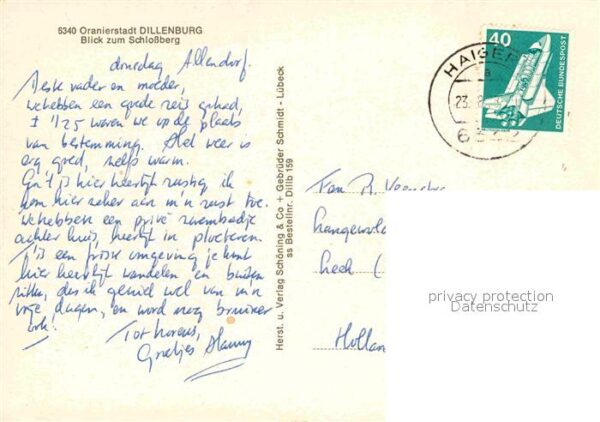 6340 Oranierstadt DILLENBURG
Blick zum Schloßberg
donsdag Allendorf.
Beste vader en moeder,
we hebben een goede reis gehad,
± 1.25 waren we op de plaats
van bestemming. Het weer is
erg goed, zelfs warm.
En 't is hier heerlijk rustig ik
kom hier zeker aan m'n rust toe.
We hebben een privé zwembadje
achter huis, heerlijk in ploeteren.
't Is een prima omgeving je kunt
hier heerlijk wandelen en
dus ik geniet wel van m'n
vrije dagen, en word nog bruiner
ook!
Tot horens,
Groetjes Hanny
Herst. u. Verlag Schöning & Co + Gebrüder Schmidt - Lübeck
ss Bestellnr. Dillb 159
Fam R.
Leek (
Hollan
HAIGER
23.
63
40
DEUTSCHE BUNDESPOST
privacy protection
Datenschutz